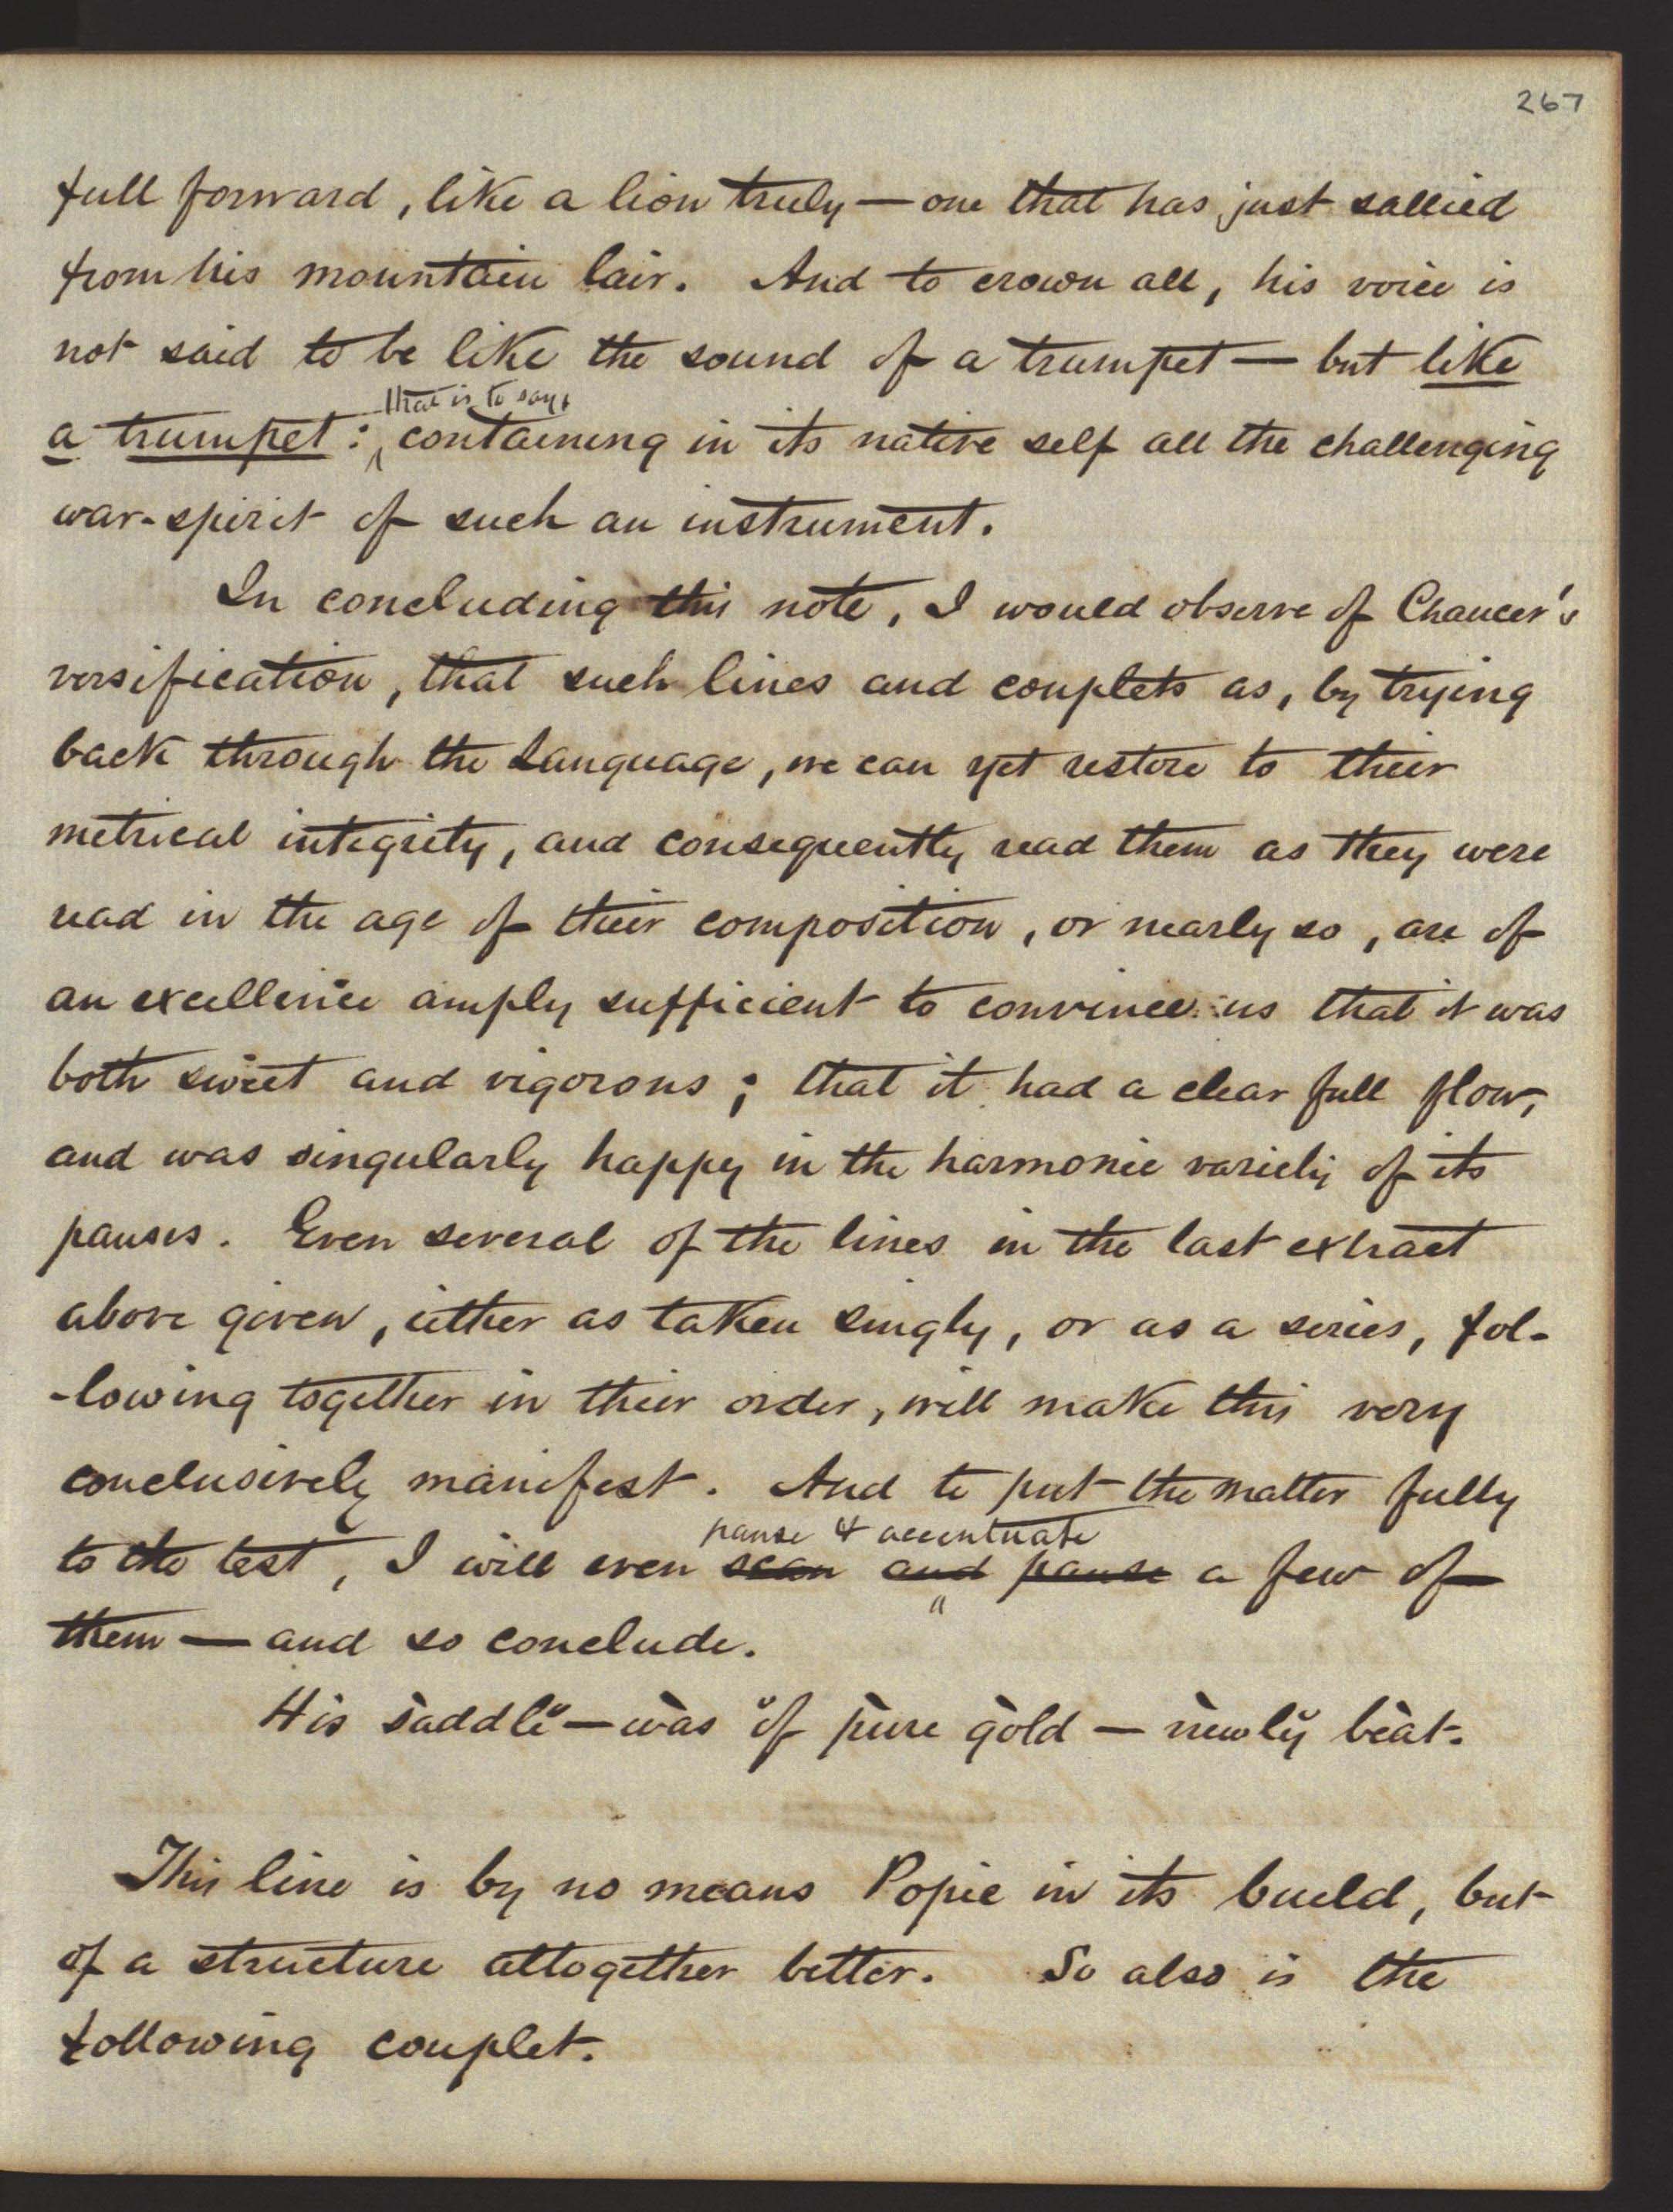 267
full forward, like a lion truly — one that has just sallied
from his mountain lair. And to crown all, his voice is
not said to be like the sound of a trumpet — but like
that is to say,
a trumpet: containing in its native self all the challenging
war-spirit of such an instrument.
In concluding this note, I would observe of Chaucer's
versification, that such lines and couplets as, by trying
back through the Language, we can yet restore to their
metrical integrity, and consequently read them as they were
read in the age of their composition, or nearly so, are of
an excellence amply sufficient to convince us that it was
both sweet and vigorous; that it had a clear full flow,
and was singularly happy in the harmonic variety of its
pauses. Even several of the lines in the last extract
above given, either as taken singly, or as a series, fol-
-lowing together in their order, will make this very
conclusively manifest. And to put the matter fully
pause & accentuate
to the test, I will even scan and pause a few of
them — and so conclude.
His sàddlĕ — wàs ŏf pùre gòld — nèwlў bèat.
This line is by no means Popic in its build, but
of a structure altogether better. So also is the
following couplet.